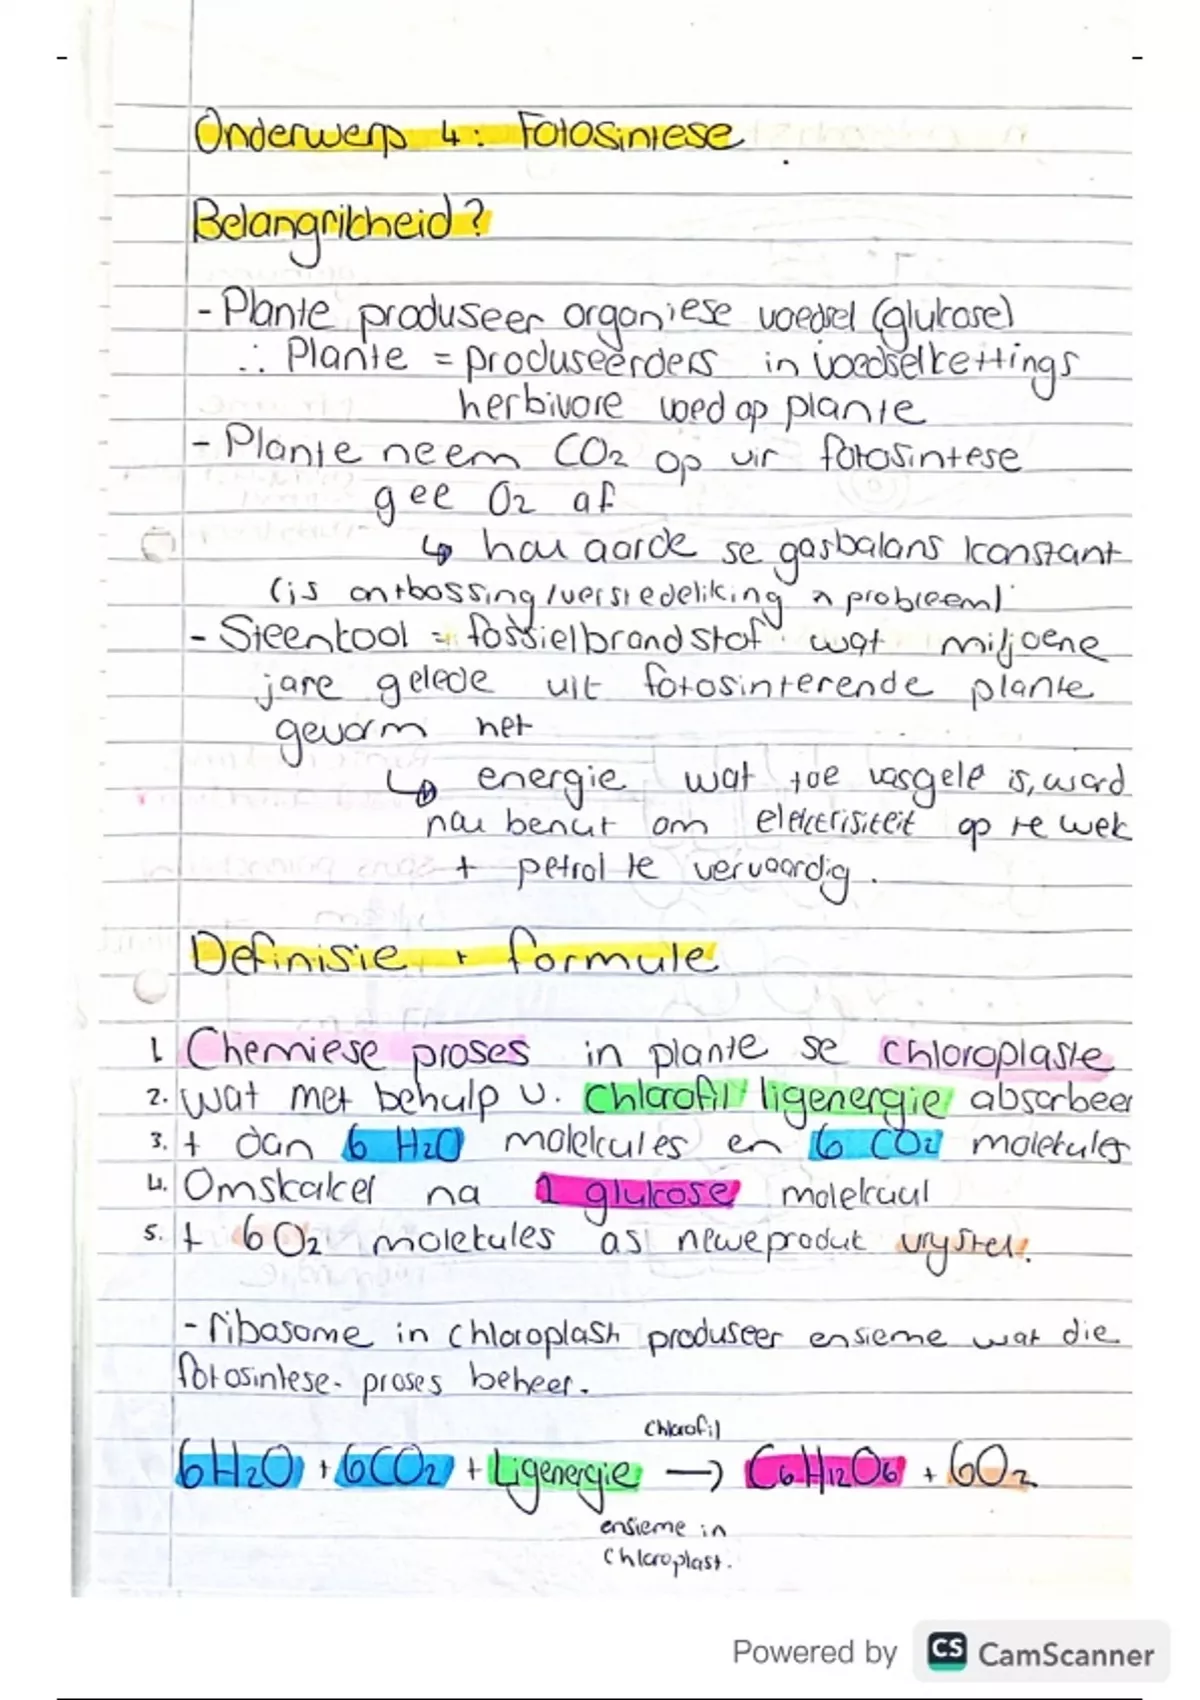 Onderwerp 4: Fotosintese
Belangrikheid?
- Plante produseer organiese voedsel (glukose)
∴ Plante = produseerders in voedselkettings
herbivore voed op plante
- Plante neem CO2 op vir fotosintese
gee O2 af
↳ hou aarde se gasbalans konstant
(is ontbossing/verstedeliking 'n probleem)
- Steenkool = fossielbrandstof wat miljoene
jare gelede uit fotosinterende plante
gevorm het
↳ energie wat toe vasgelê is, word
nou benut om elektrisiteit op te wek
+ petrol te vervaardig.
Definisie + formule
1. Chemiese proses in plante se chloroplaste
2. wat met behulp v. chlorofil ligenergie absorbeer
3. + dan 6 H2O molekules en 6 CO2 molekules
4. Omskakel na 1 glukose molekuul
5. + 6O2 molekules as neweproduk vrystel.
- ribosome in chloroplast produseer ensieme wat die
fotosintese-proses beheer.
chlorofil
6H2O + 6CO2 + Ligenergie → C6H12O6 + 6O2
ensieme in
chloroplast.
Powered by CS CamScanner